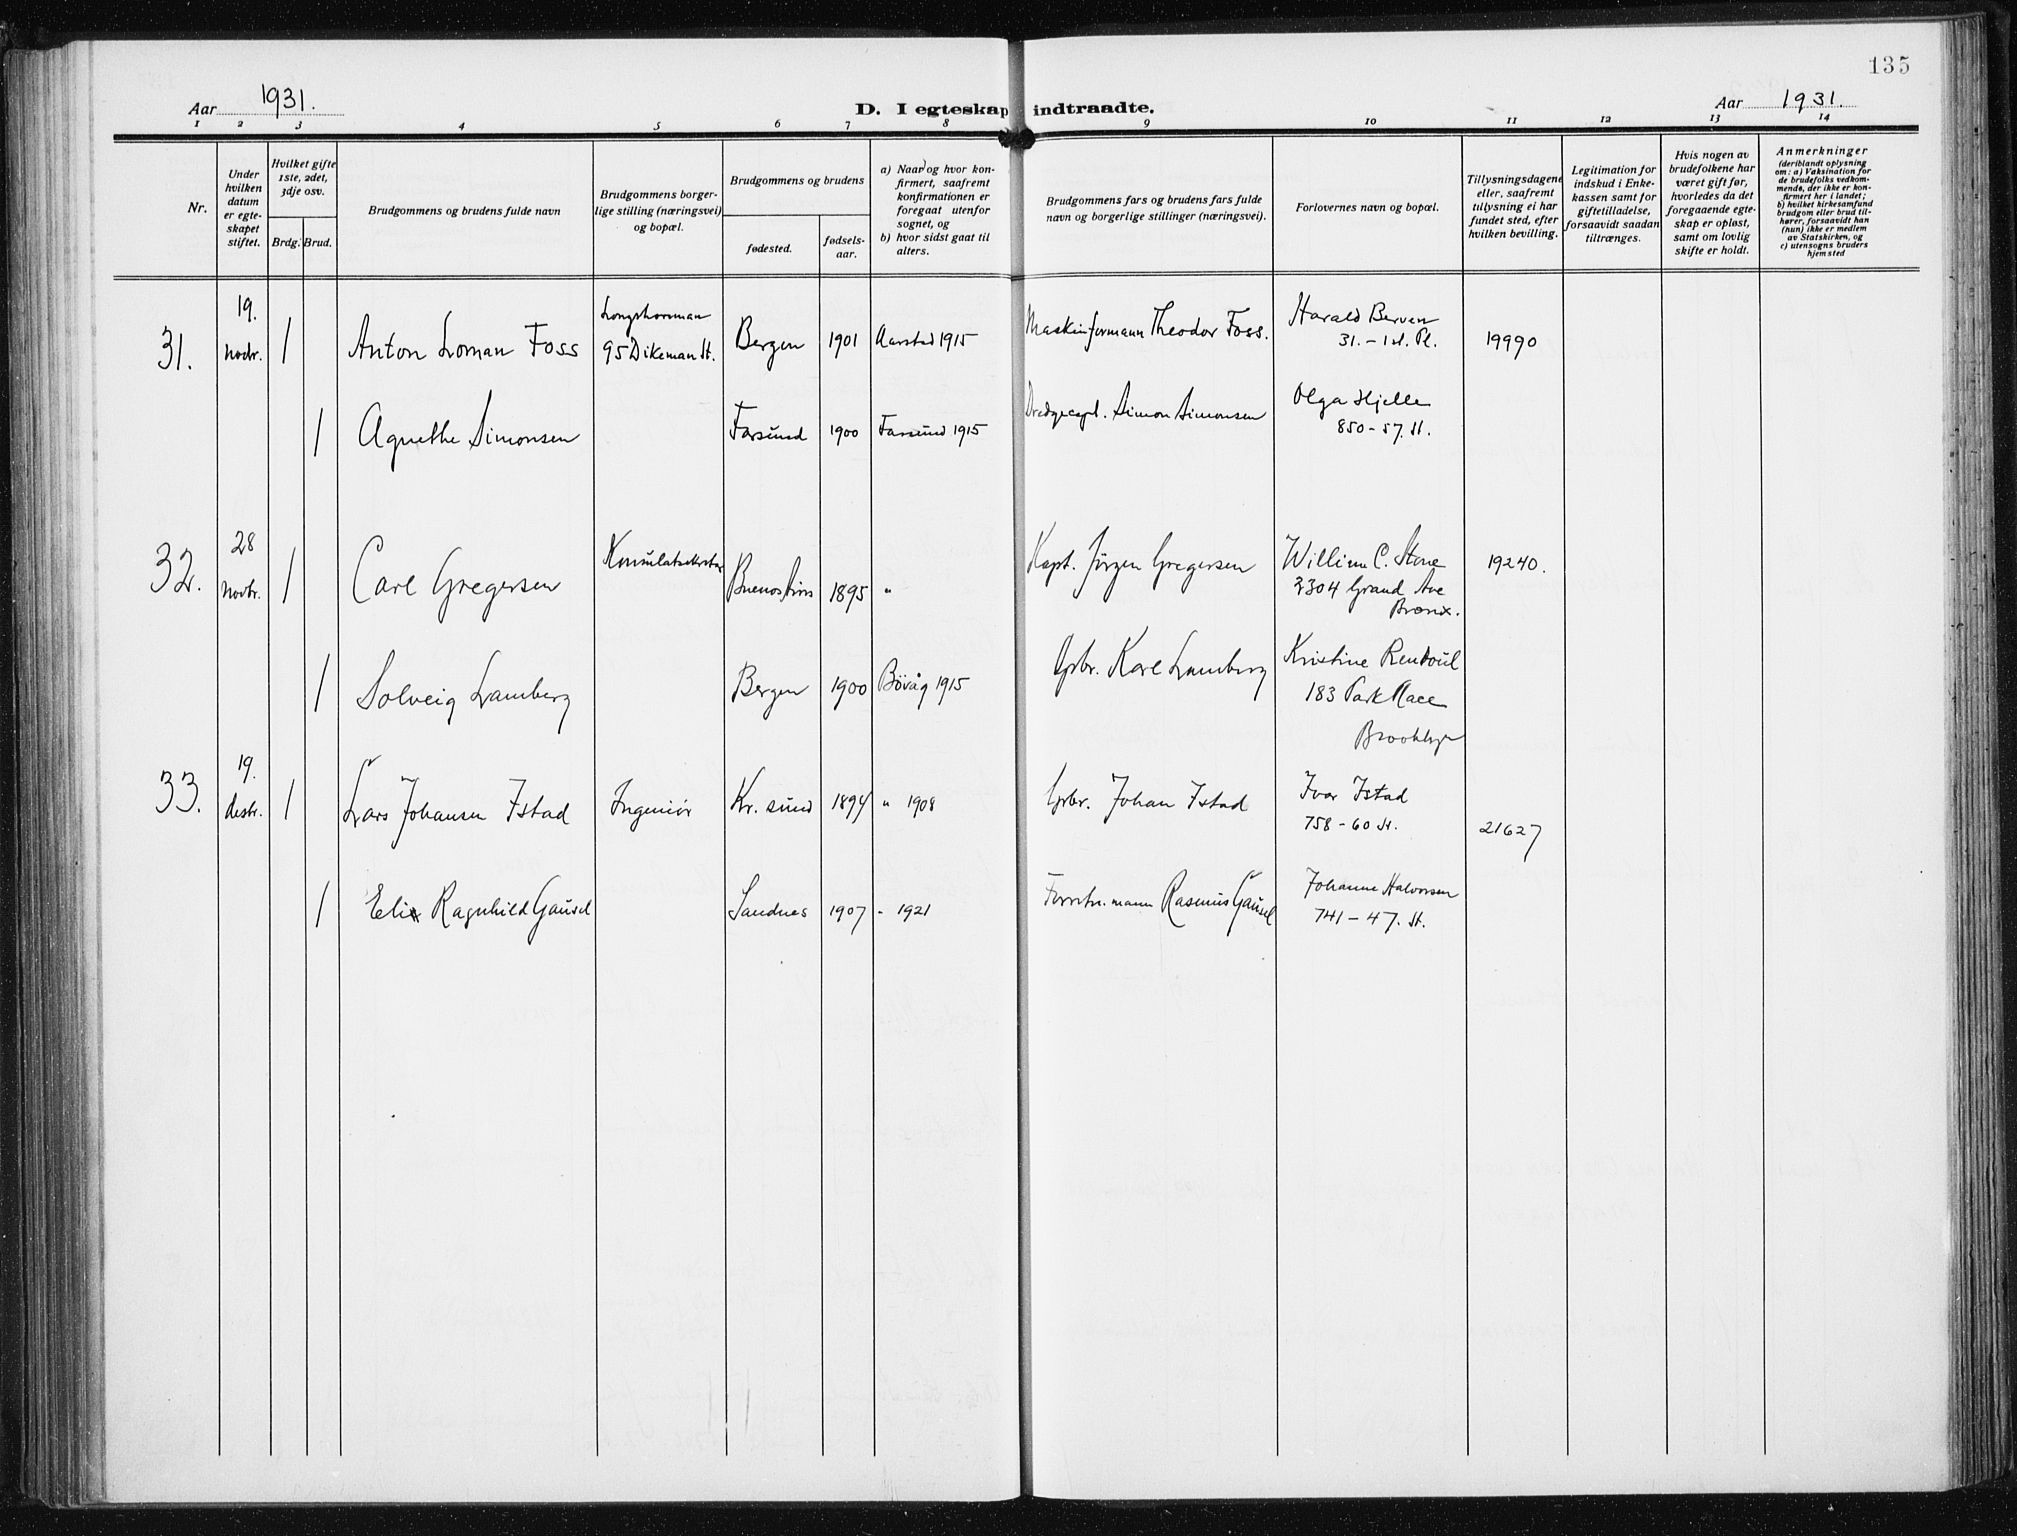 135
Aar 1931.
D. I egteskap indtraadte.
Aar 1931.
1 2 3 4 5 6 7 8 9 10 11 12 13 14
Nr.
Under
hvilken
datum
er egte-
skapet
stiftet.
Hvilket gifte
1ste, 2det,
3dje osv.
Brdg. Brud.
Brudgommens og brudens fulde navn
Brudgommens borger-
lige stilling (næringsvei)
og bopæl.
Brudgommens og brudens
fødested.
fødsels-
aar.
a) Naar og hvor kon-
firmert, saafremt
konfirmationen er
foregaat utenfor
sognet, og
b) hvor sidst gaat til
alters.
Brudgommens fars og brudens fars fulde
navn og borgerlige stillinger (næringsvei).
Forlovernes navn og bopæl.
Tillysningsdagene
eller, saafremt
tillysning ei har
fundet sted, efter
hvilken bevilling.
Legitimation for
indskud i Enke-
kassen samt for
giftetilladelse,
forsaavidt saadan
tiltrænges.
Hvis nogen av
brudefolkene har
været gift før,
hvorledes da det
foregaaende egte-
skap er opløst,
samt om lovlig
skifte er holdt.
Anmerkninger
(deriblandt oplysning
om: a) Vaksination for
de brudefolks vedkom-
mende, der ikke er kon-
firmert her i landet;
b) hvilket kirkesamfund
brudgom eller brud til-
hører, forsaavidt han
(hun) ikke er medlem
av Statskirken, og
c) utensogns bruders
hjemsted
31.
19.
Novbr.
1
Anton Loman Foss
Longshorman
95 Dikeman St.
Bergen
1901
Aarstad 1915
Maskinformann Theodor Foss.
Harald Berven
31. - 1st. Pl.
19990
1
Agnethe Simonsen
Farsund
1900
Farsund 1915
Dredgecapt. Simon Simonsen
Olga Hjelle
850 - 57. St.
32.
28
Novbr.
1
Carl Gregersen
Konsulatsekretær
Buenos Aires
1895
"
Kapt. Jörgen Gregersen
William C. Stone
2304 Grand Ave
Bronx.
19240.
1
Solveig Lamberg
Bergen
1900
Bövåg 1915
Grbr. Karl Lamberg
Kristine Rendoul
183 Park Place
Brooklyn
33.
19.
desbr.
1
Lars Johansen Istad
Ingeniör
Kr. sund
1894
" 1908
Grbr. Johan Istad
Ivar Istad
758 - 60 St.
21627
1
Eli Ragnhild Gausel
Sandnes
1907
" 1921
mann Rasmus Gausel
Johanne Halvorsen
741 - 47. St.